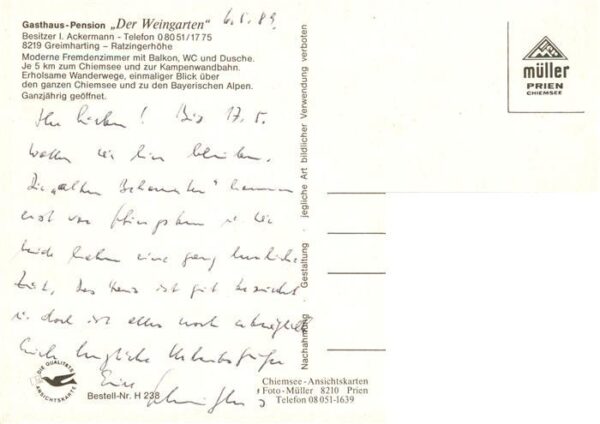 Gasthaus-Pension „Der Weingarten"
6.5.89
Besitzer I. Ackermann - Telefon 0 80 51/17 75
8219 Greimharting - Ratzingerhöhe
Moderne Fremdenzimmer mit Balkon, WC und Dusche.
Je 5 km zum Chiemsee und zur Kampenwandbahn.
Erholsame Wanderwege, einmaliger Blick über
den ganzen Chiemsee und zu den Bayerischen Alpen.
Ganzjährig geöffnet.
müller
PRIEN
CHIEMSEE
Ihr Lieben! Bis 17.5.
wollen wir hier bleiben.
Die „alten Bekannten" kommen
erst vor Pfingsten u. wir
beide haben eine ganz herrliche
Zeit. Das Haus ist gut besucht
u. doch ist alles noch
Euch herzliche Urlaubsgrüße
Eure
DIE QUALITÄTS
ANSICHTSKARTE
Bestell-Nr. H 238
Chiemsee-Ansichtskarten
Foto-Müller 8210 Prien
Telefon 08 051-1639
Nachahmung - Gestaltung - jegliche Art bildlicher Verwendung verboten